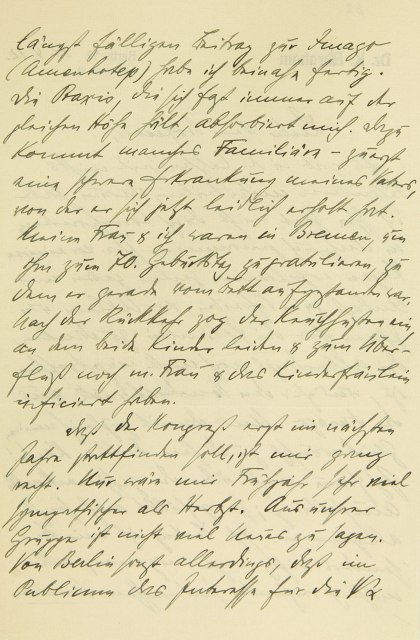 längst fälligen Beitrag zur Imago
(Amenhotep) habe ich beinahe fertig.
Die Praxis, die sich fast immer auf der
gleichen Höhe hält, absorbiert mich. Dazu
kommt manches Familiäre – zuerst
eine schwere Erkrankung meines Vaters,
von der er sich jetzt leidlich erholt hat.
Meine Frau & ich waren in Bremen, um
ihm zum 70. Geburtstag zu gratulieren, zu
dem er gerade vom Bett aufgestanden war.
Nach der Rückkehr zog der Keuchhusten ein,
an dem beide Kinder leiden & zum Über-
fluß noch m. Frau & das Kinderfräulein
inficiert haben.
Daß der Kongreß erst im nächsten
Jahre stattfinden soll, ist mir ganz
recht. Nur wäre mir Frühjahr sehr viel
sympathischer als Herbst. Aus unsrer
Gruppe ist nicht viel Neues zu sagen.
Von Berlin sagt allerdings, daß im
Publicum das Interesse für die ΨΑ